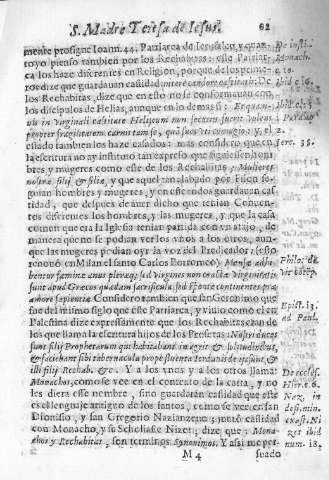 S. Madre Teresa de Iesus. 62
mente prosigue Ioann. 44. Patriarca de Ierusalen, y
troyo pienso tambien por los Rechabitas: este Patriar-
ca los haze diferentes en Religion, porque de los
ro dize que guardauan castidad
los Rechabitas, dize que en esto no se conformauan con
los dicipulos de Helias, aunque en lo demas:
uis in Virginali castitate Heliacum non
propter fragilitatem carnis tamse, quà suos
estado tambien los haze casados: mas considero que en
la escritura no ay instituto tan expreso que siguiessen hom-
bres y mugeres como este de los Rechabitas, Mulieres
nostræ filij & filiæ, y que aquel tan alabado por Filon
braua hombres y mugeres, y en estos dos guardauan cas-
tidad, que despues de auer dicho que tenian Conuen-
tos distintos los hombres, y las mugeres, y que la casa
comun que era la Iglesia tenian partida con vn atajo, de
manera que no se podian ver los vnos a los otros, aun-
que las mugeres podian oyr la voz del Predicador, (esto
renouò en Milan el santo Carlos Borromeo) Mensæ adhi-
bentur fæminæ anus pleræque sed Virgines non coactæ Virginitatis
sunt apud Græcos quædam sacrificulæ sed sponte continentes præ
amore sapientiæ. Considero tambien que san Geronimo que
fue del mismo siglo que este Patriarca, y viuio como el en
Palestina dize expressamente que los Rechabitas eran de
los que llama la escritura hijos de los Profetas:
sunt filij Prophetarum qui habitabant in agris & solitudinibus,
& faciebant sibi tabernacula prope fluenta Iordanis de istis sunt, &
illi filij Rechab. &c. Y a los vnos y a los otros llama:
Monachos, como se ve en el contexto de la carta, y no
les diera esse nombre, sino guardarán castidad que este
es el lenguaje antiguo de los santos, como se vee en san
Dionisio, y san Gregorio Nazianzeno; notè castidad
con Monacho, y su Scholiaste Nizet. dize que: Mona-
chos y Rechabitas, son terminos Synonimos. Y assi me per-
M 4 suado
De insti.
Monach.
Ibid. c. 1.
Ierc. 35.
Philo: de
vit
Epist. 13.
ad Paul.
De eccles.
Hier. c. 6.
Naz. in
exist. Ni
zet ibid
num. 18.